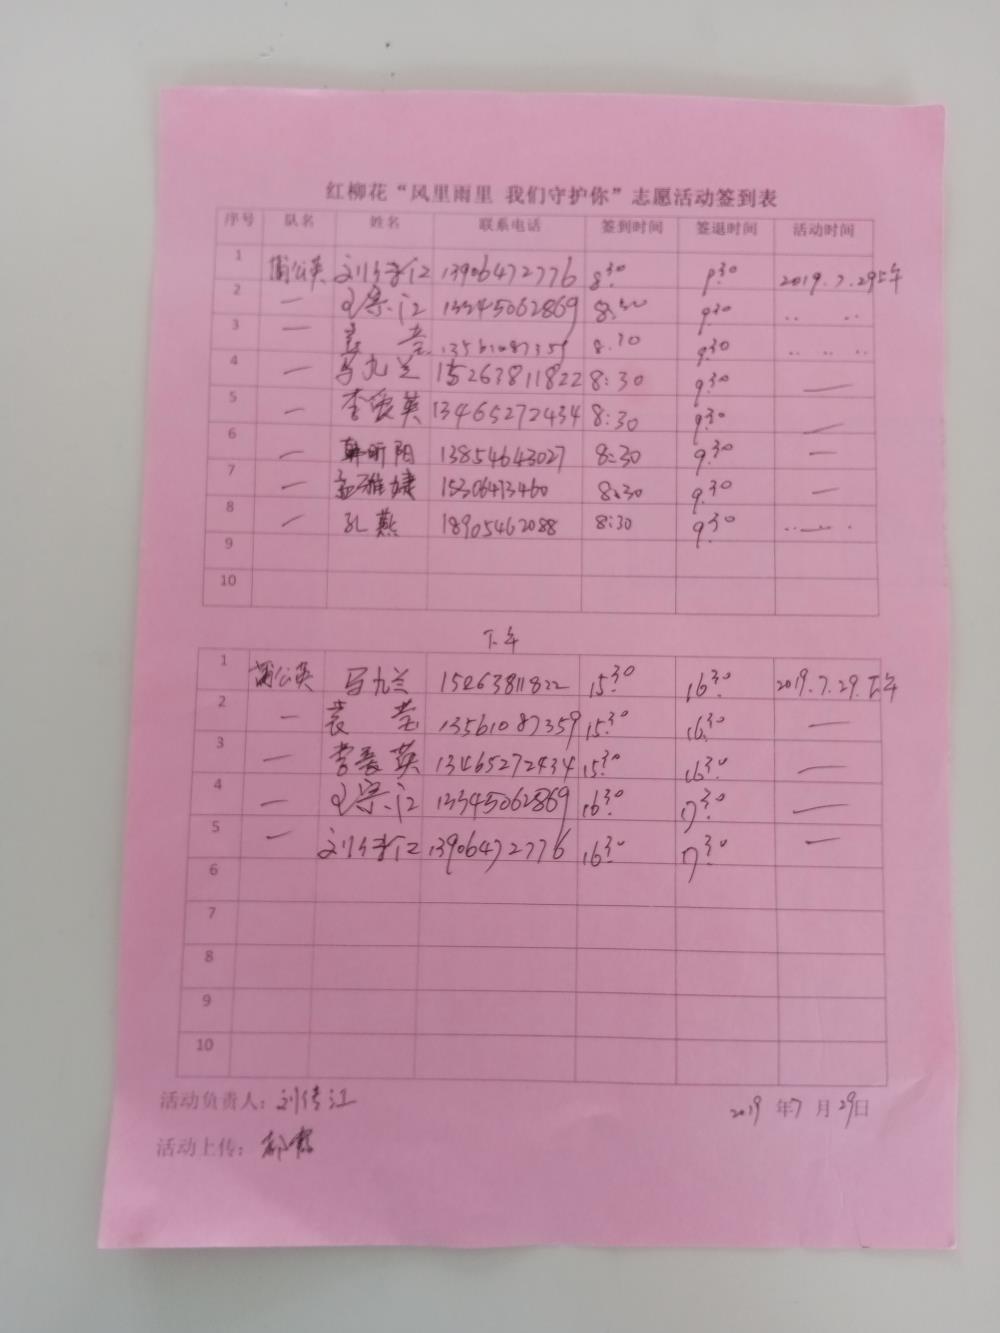 红柳花“风里雨里 我们守护你”志愿活动签到表
序号 队名 姓名 联系电话 签到时间 签退时间 活动时间
1 蒲公英 刘传江 13906472776 8:30 9:30 2019.7.29上午
2 一 13345062869 8:30 9:30 .. ..
3 一 袁莹 13561087359 8:30 9:30 .. .. ..
4 一 马九兰 15263811822 8:30 9:30 一
5 一 李爱英 13465272434 8:30 9:30 一
6 一 韩昕阳 13854643027 8:30 9:30 一
7 一 孟雅婕 15306473460 8:30 9:30 一
8 一 孔燕 18905462088 8:30 9:30
9
10
下午
1 蒲公英 马九兰 15263811822 15:30 16:30 2019.7.29.下午
2 一 袁莹 13561087359 15:30 16:30 一
3 一 李爱英 13465272434 15:30 16:30 一
4 一 13345062869 16:30 17:30 一
5 一 刘传江 13906472776 16:30 17:30 一
6
7
8
9
10
活动负责人：刘传江 2019 年7 月 29日
活动上传：